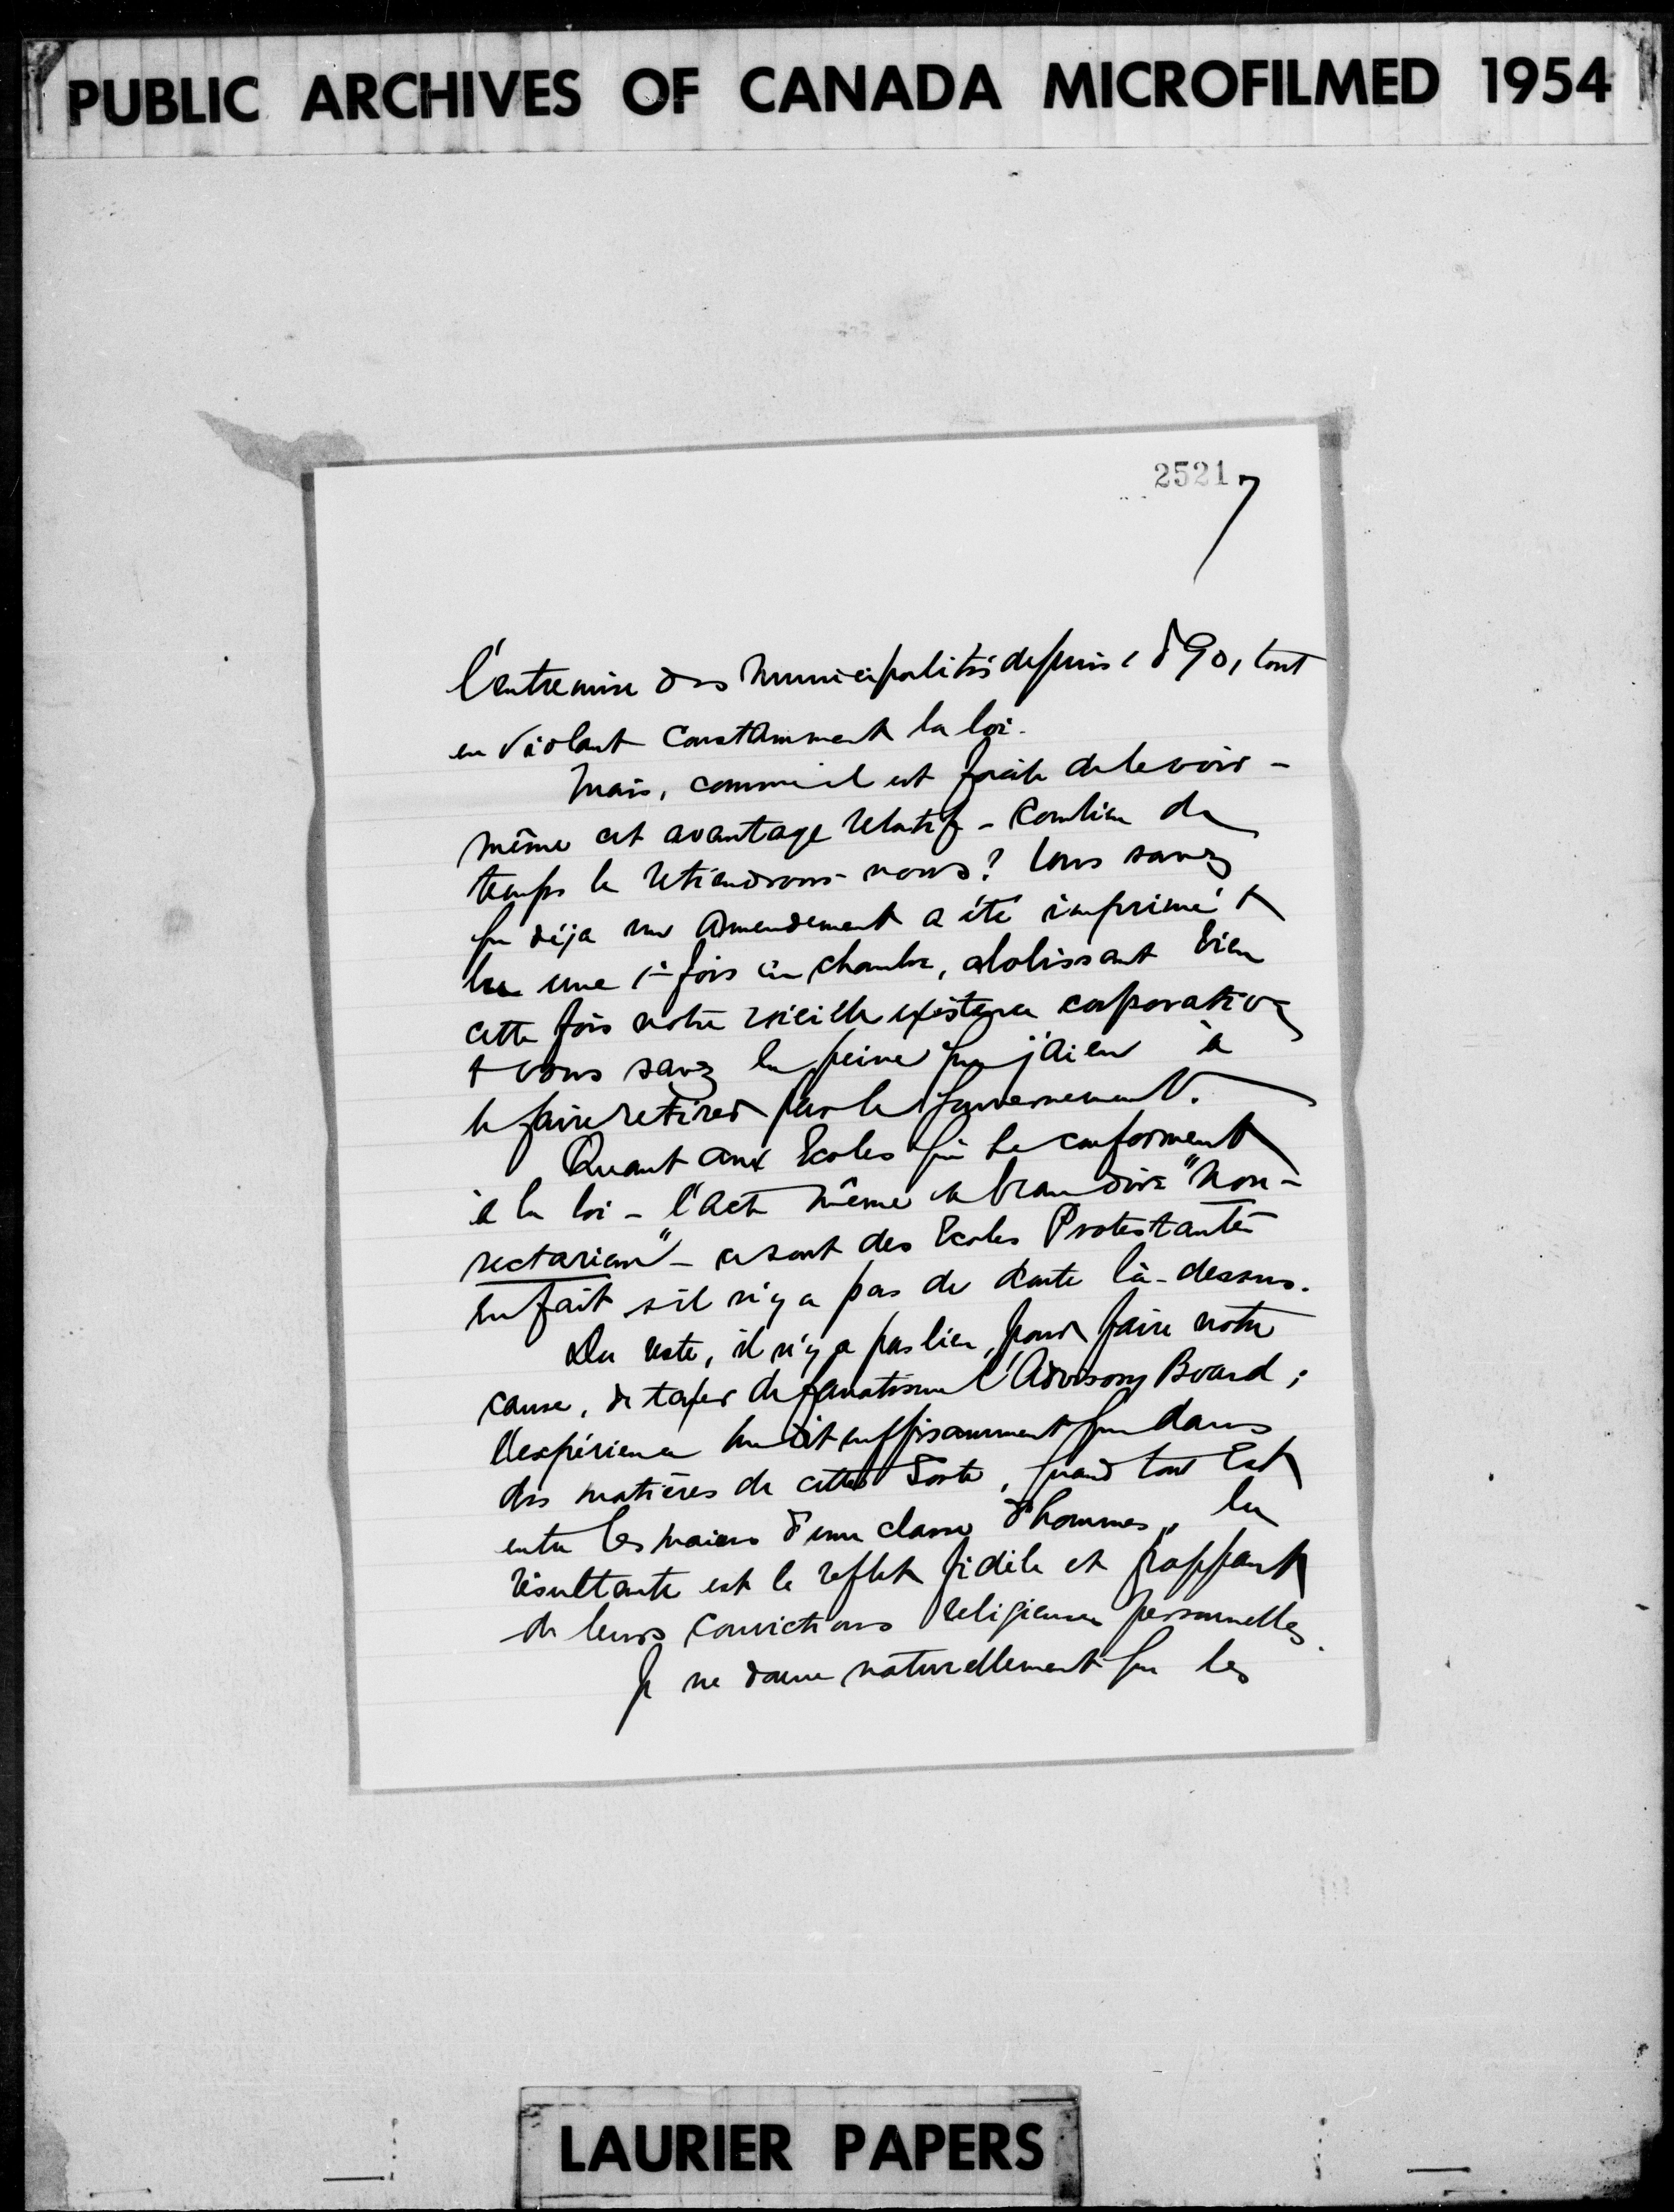 PUBLIC ARCHIVES OF CANADA MICROFILMED 1954
2521
7
l'entremise des municipalités depuis 1890, tout
en violant constamment la loi.
Mais, comme il est facile de le voir -
même cet avantage relatif - combien de
temps le retiendrons-nous? Vous savez
que déja un amendement a été imprimé +
lu une 1re fois en chambre, abolissant bien
cette fois notre vieille existence corporative
+ vous savez la peine que j'ai eu à
le faire retirer par le gouvernement.
Quant aux Ecoles qui se conforment
à la loi - l'acte même a beau dire "Non-
sectarian" - ce sont des Ecoles Protestantes
en fait s'il n'y a pas de doute là-dessus.
Du reste, il n'y a pas lieu, pour faire notre
cause, de taxer de fanatisme l'Advisory Board;
l'expérience dit suffisamment que dans
des matières de cette sorte, quand tout est
entre les mains d'une classe d'hommes, la
résultante est le reflet fidèle et frappant
de leurs convictions religieuses personnelles.
Je ne donne naturellement que les
LAURIER PAPERS